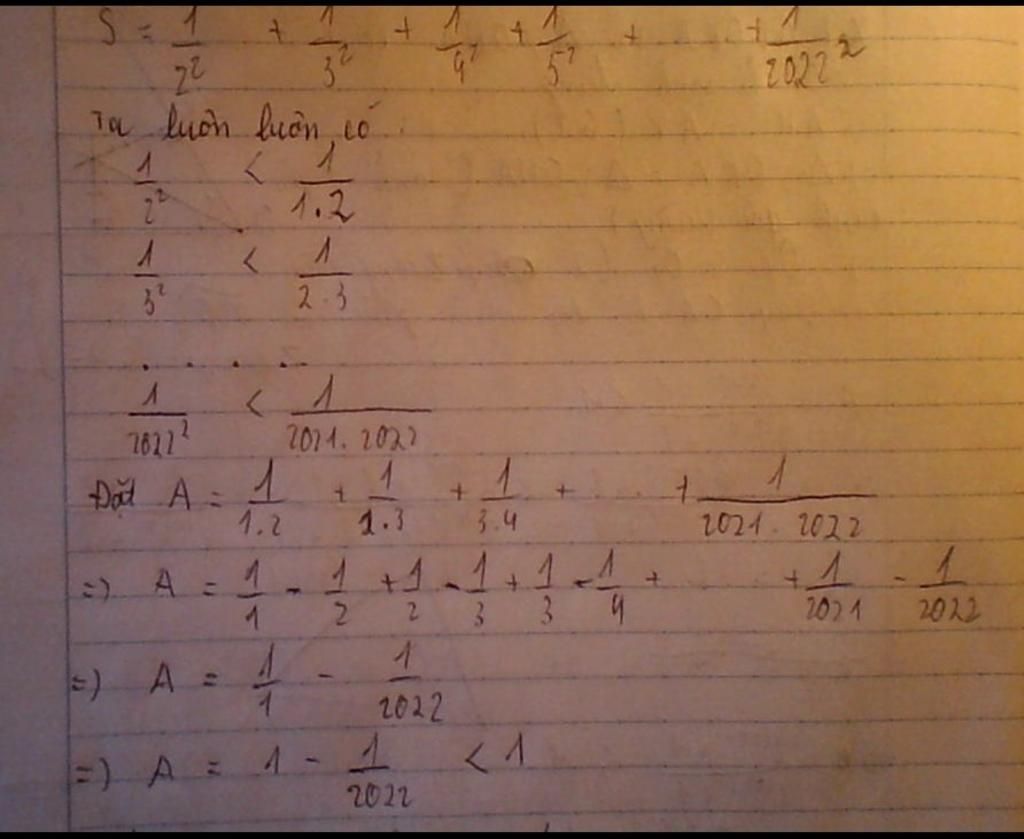 S = 1/2² + 1/3² + 1/4² + 1/5² + + 1/2022²
Ta luôn luôn có
1/2² < 1/1.2
1/3² < 1/2.3
. . . . ..
1/2022² < 1/2021.2022
Đặt A = 1/1.2 + 1/2.3 + 1/3.4 + ..... + 1/2021.2022
=) A = 1/1 - 1/2 + 1/2 - 1/3 + 1/3 - 1/4 + ..... + 1/2021 - 1/2022
=) A = 1/1 - 1/2022
=) A = 1 - 1/2022 < 1